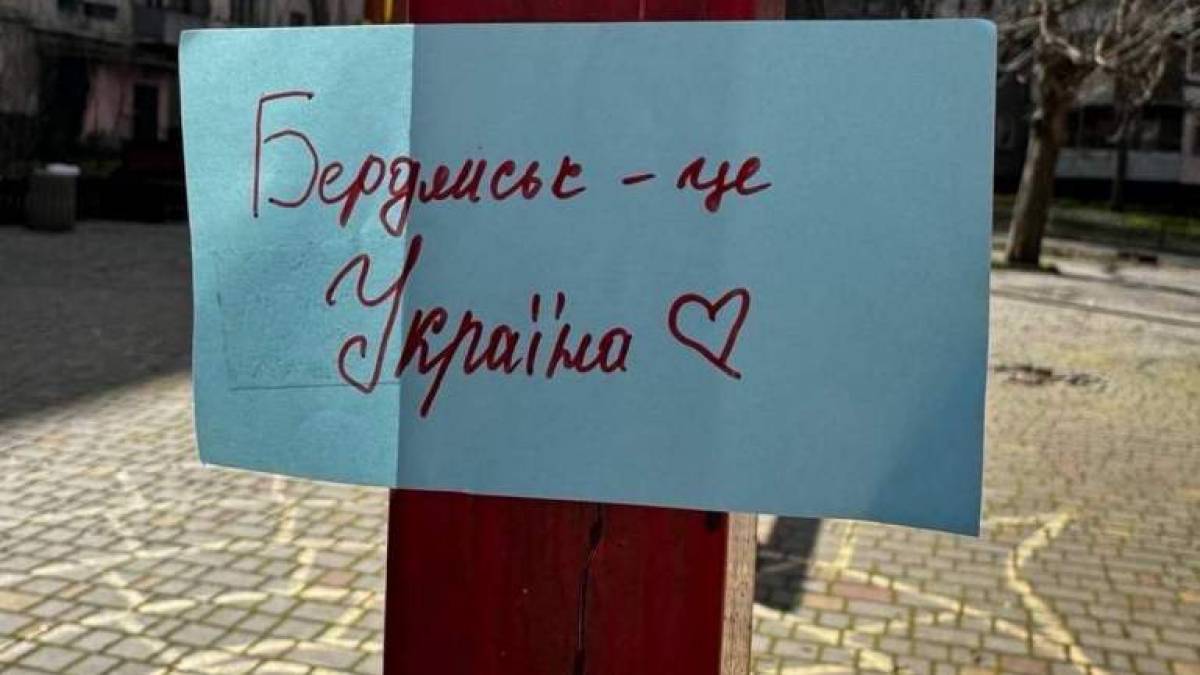 Бердянськ - це
Україна ♡